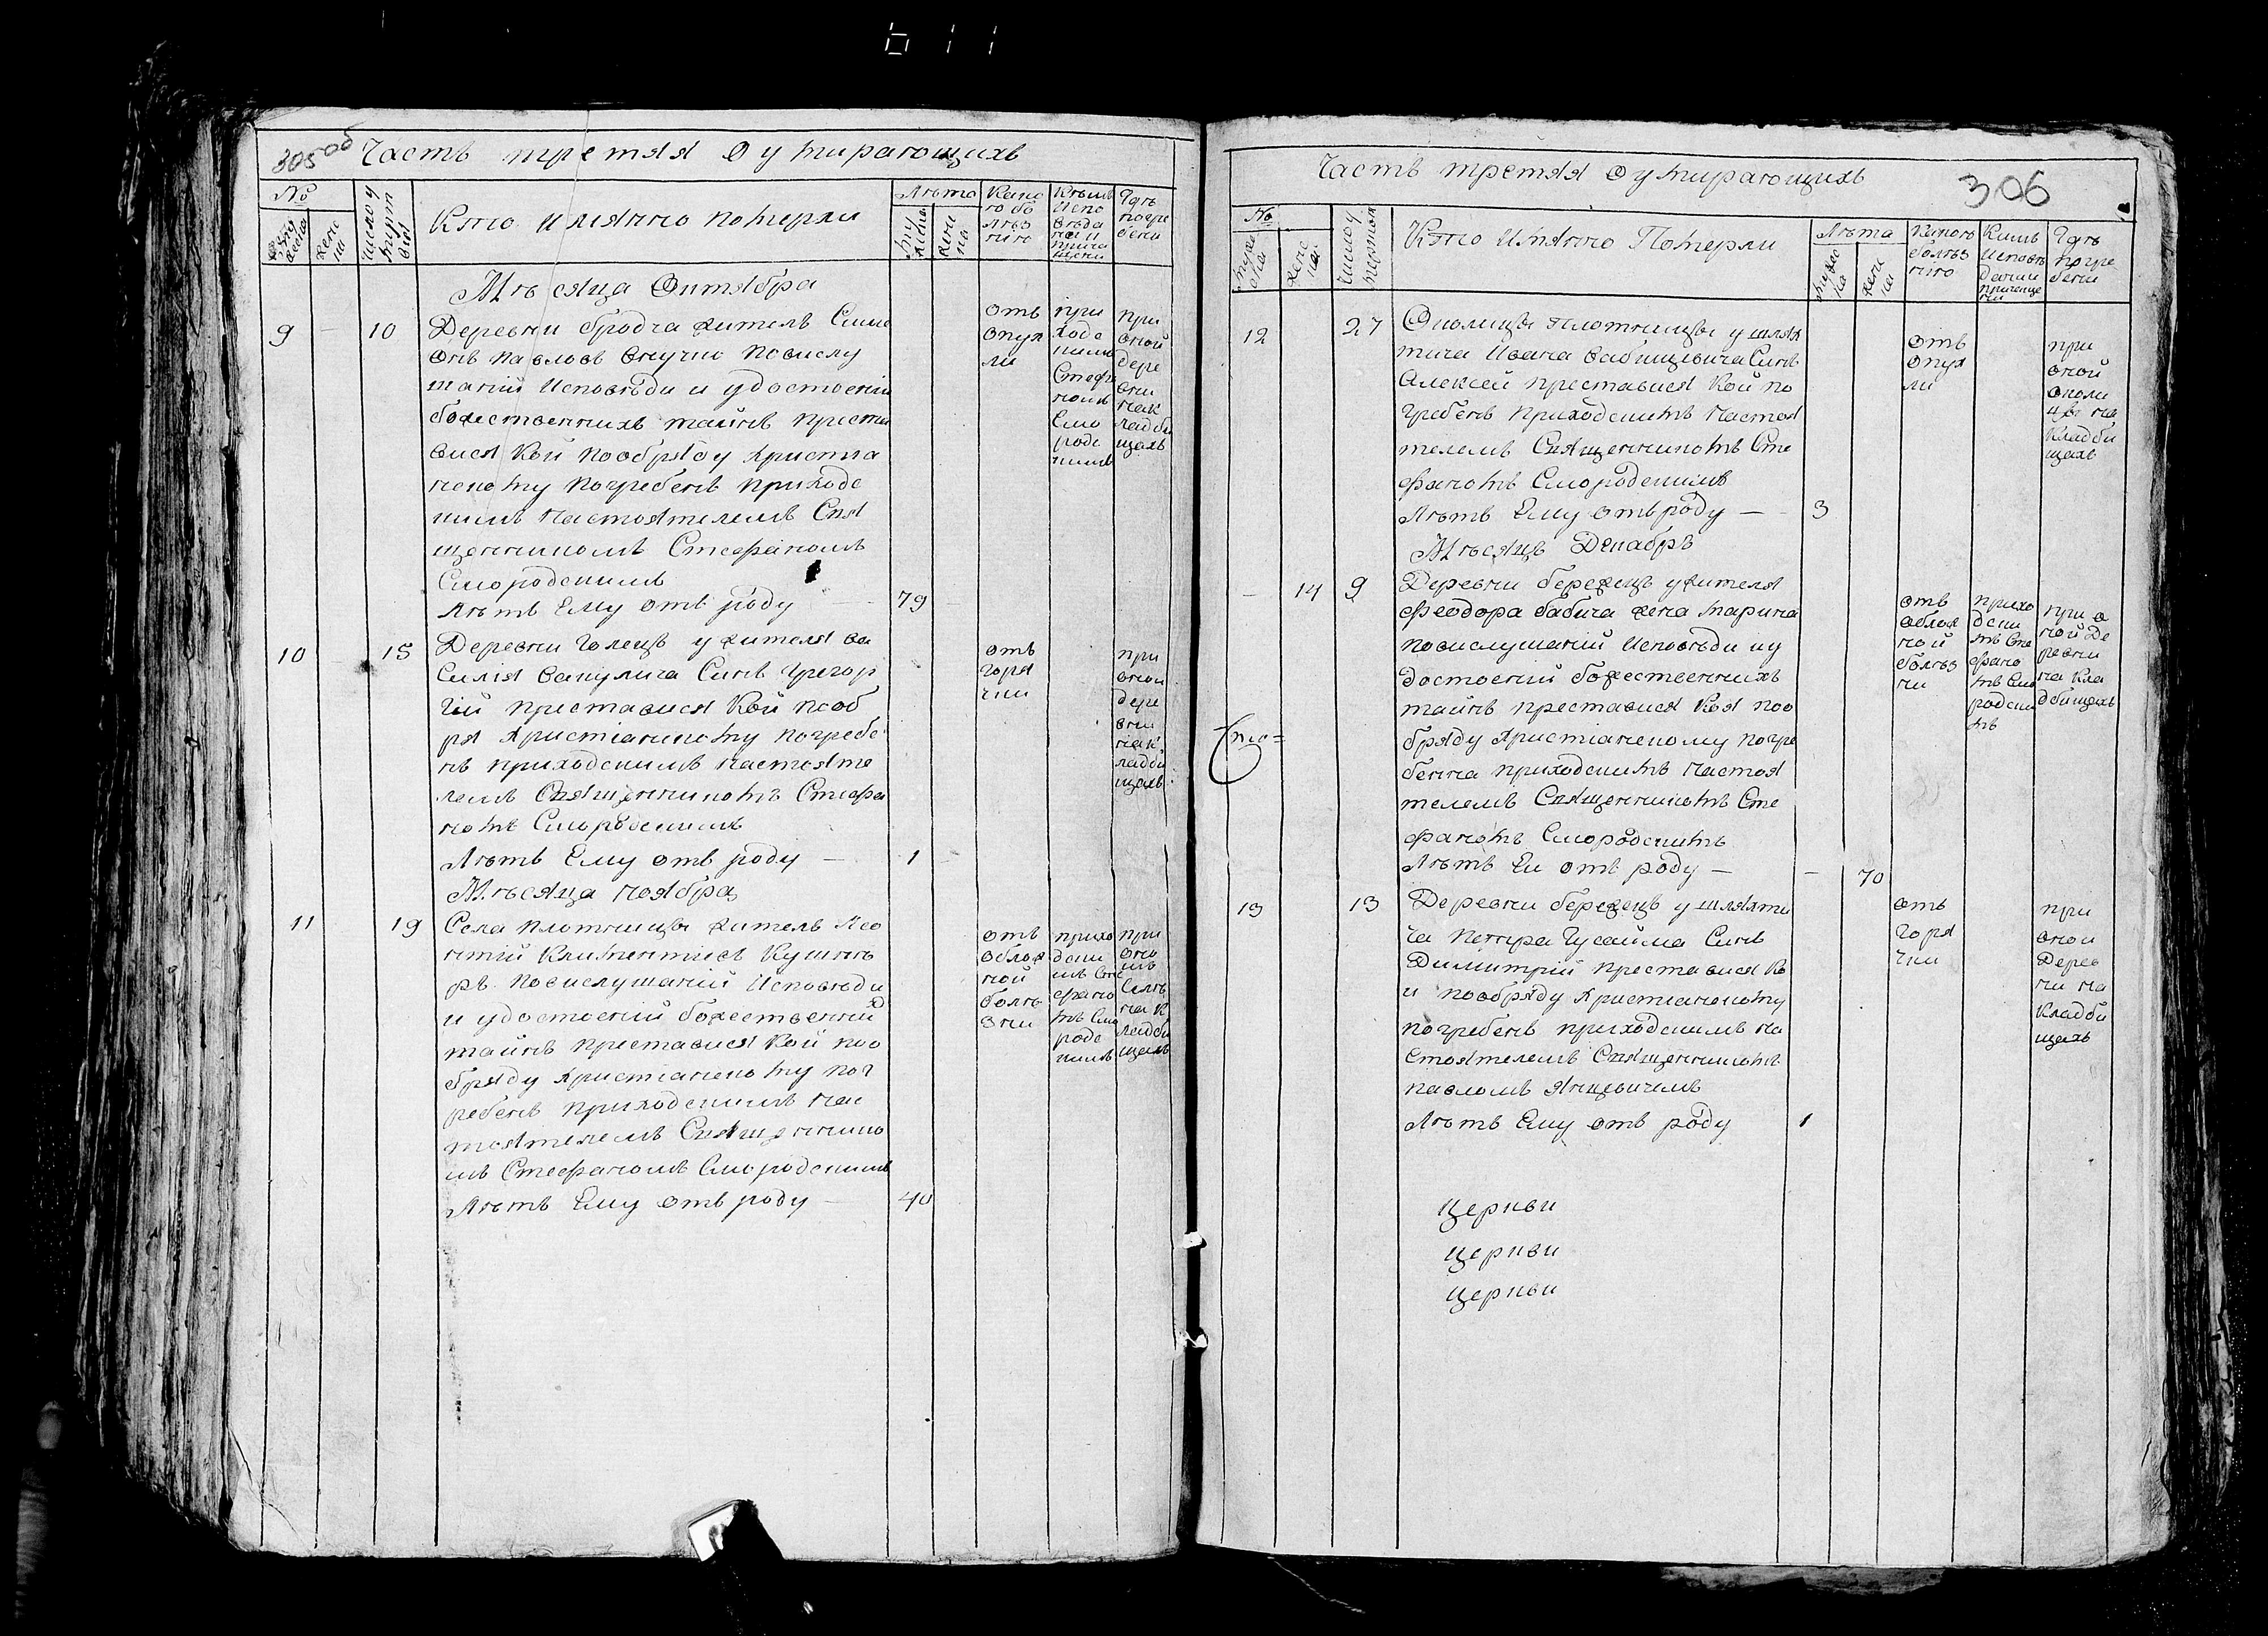 305 об Часть третяя О умирающихъ
№
Мужеска
жена
Число умертвія
Кто имянно померли
Лѣта
мужеска
жена
Какою болѣзнию
Кѣмъ исповѣданы и причащены
Гдѣ погребены
Мѣсяца Октября
9 10 Деревни бродча житель Симе
онъ павловъ
повислу
шаний Исповѣди и удостоений
божественнихъ тайнъ преста
вися Кой пообряду христиа
нскому погребенъ приходс
кимъ настоятелемъ Свя
щенникомъ Стефаномъ
Смородскимъ
Лѣтъ Ему отъ роду — 79
отъ
опух
ли
при
ходс
кимъ
Стефа
номъ
Смо
родс
кимъ
при
оной
дере
вни
нак
ладби
щахъ
10 15 Деревни голецъ у жителя ва
силия вакулича Синъ григор
гий преставися Кой пооб
ря христіанскому погребе
нъ приходскимъ настояте
лемъ Священникомъ Стефа
номъ Смородскимъ
Лѣтъ Ему отъ роду — 1
отъ
горя
чки
при
оной
дере
вни
нак
ладби
щахъ
Мѣсяца ноября
11 19 Села плотницы житель Лео
нтий Климентиевъ Кушнѣ
ръ повислушаний Исповѣди
и удостоений божественний
тайнъ преставися Кой поо
бряду христианскому пог
ребенъ приходскимъ нас
тоятелемъ Священнико
мъ Стефаномъ Смородскимъ
Лѣтъ Ему отъ роду — 40
отъ
облож
ной
болѣ
зни
прихо
дски
мъ Сте
фано
мъ Смо
родс
кимъ
при
оно
мъ
Селѣ
на к
ладби
щахъ
Часть третяя О умирающихъ 306
№
мужеска
жена
Число умертвия
Кто имянно Померли
Лѣта
мужеска
жена
Какою болѣзнию
Кимъ Исповѣдании причащени
Гдѣ погребени
12 27 Околицы плотницы у шлях
тича Ивана бабицевича Синъ
Алексей преставися Кой по
гребенъ приходскимъ настоя
телемъ Священникомъ Сте
фаномъ Смородскимъ
Лѣтъ Ему отъ роду — 3
отъ
опух
ли
при
оной
околи
цы на
кладби
щахъ
Мѣсяцъ Декабръ
14 9 Деревни бережцъ у жителя
феодора бабича жена марина
повислушаний Исповѣди иу
достоений божественнихъ
тайнъ преставися Коя поо
бряду христианскому погре
бенна приходскимъ настоя
телемъ Священникомъ Сте
фаномъ Смородскимъ
Лѣтъ Еи отъ роду — 70
отъ
облож
ной
болѣз
ни
прихо
дски
мъ Сте
фано
мъ Смо
родски
мъ
при о
ной де
ревни
на кла
дбищахъ
13 13 Деревни бережцъ у шляхти
ча петра Гусайма Синъ
Димитрий преставися Ко
и пообряду христианскому
погребенъ приходскимъ на
стоятелемъ Священникомъ
павломъ янцевичемъ
Лѣтъ Ему отъ роду 1
отъ
горя
чки
при
оной
Дерев
ни на
кладби
щахъ
Церкви
церкви
церкви